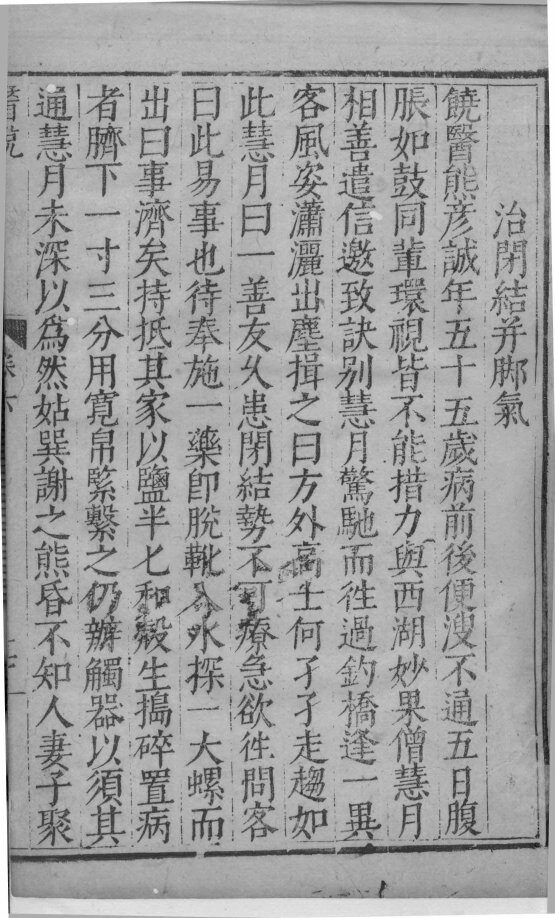 治閉結并脚氣
饒醫熊彦誠年五十五歲病前後便溲不通五日腹
脹如鼓同輩環視皆不能措力與西湖妙果僧慧月
相善遣信邀致訣别慧月驚馳而徃過釣橋逢一異
客風姿瀟灑出塵揖之曰方外高士何孑孑走趨如
此慧月曰一善友乆患閉結勢不可療急欲徃問客
曰此易事也待奉施一藥卽脫靴入水探一大螺而
出曰事濟矣持抵其家以鹽半匕和殻生搗碎置病
者臍下一寸三分用寛帛緊繫之仍辦觸器以須其
通慧月未深以爲然姑巽謝之熊昏不知人妻子聚
醫說